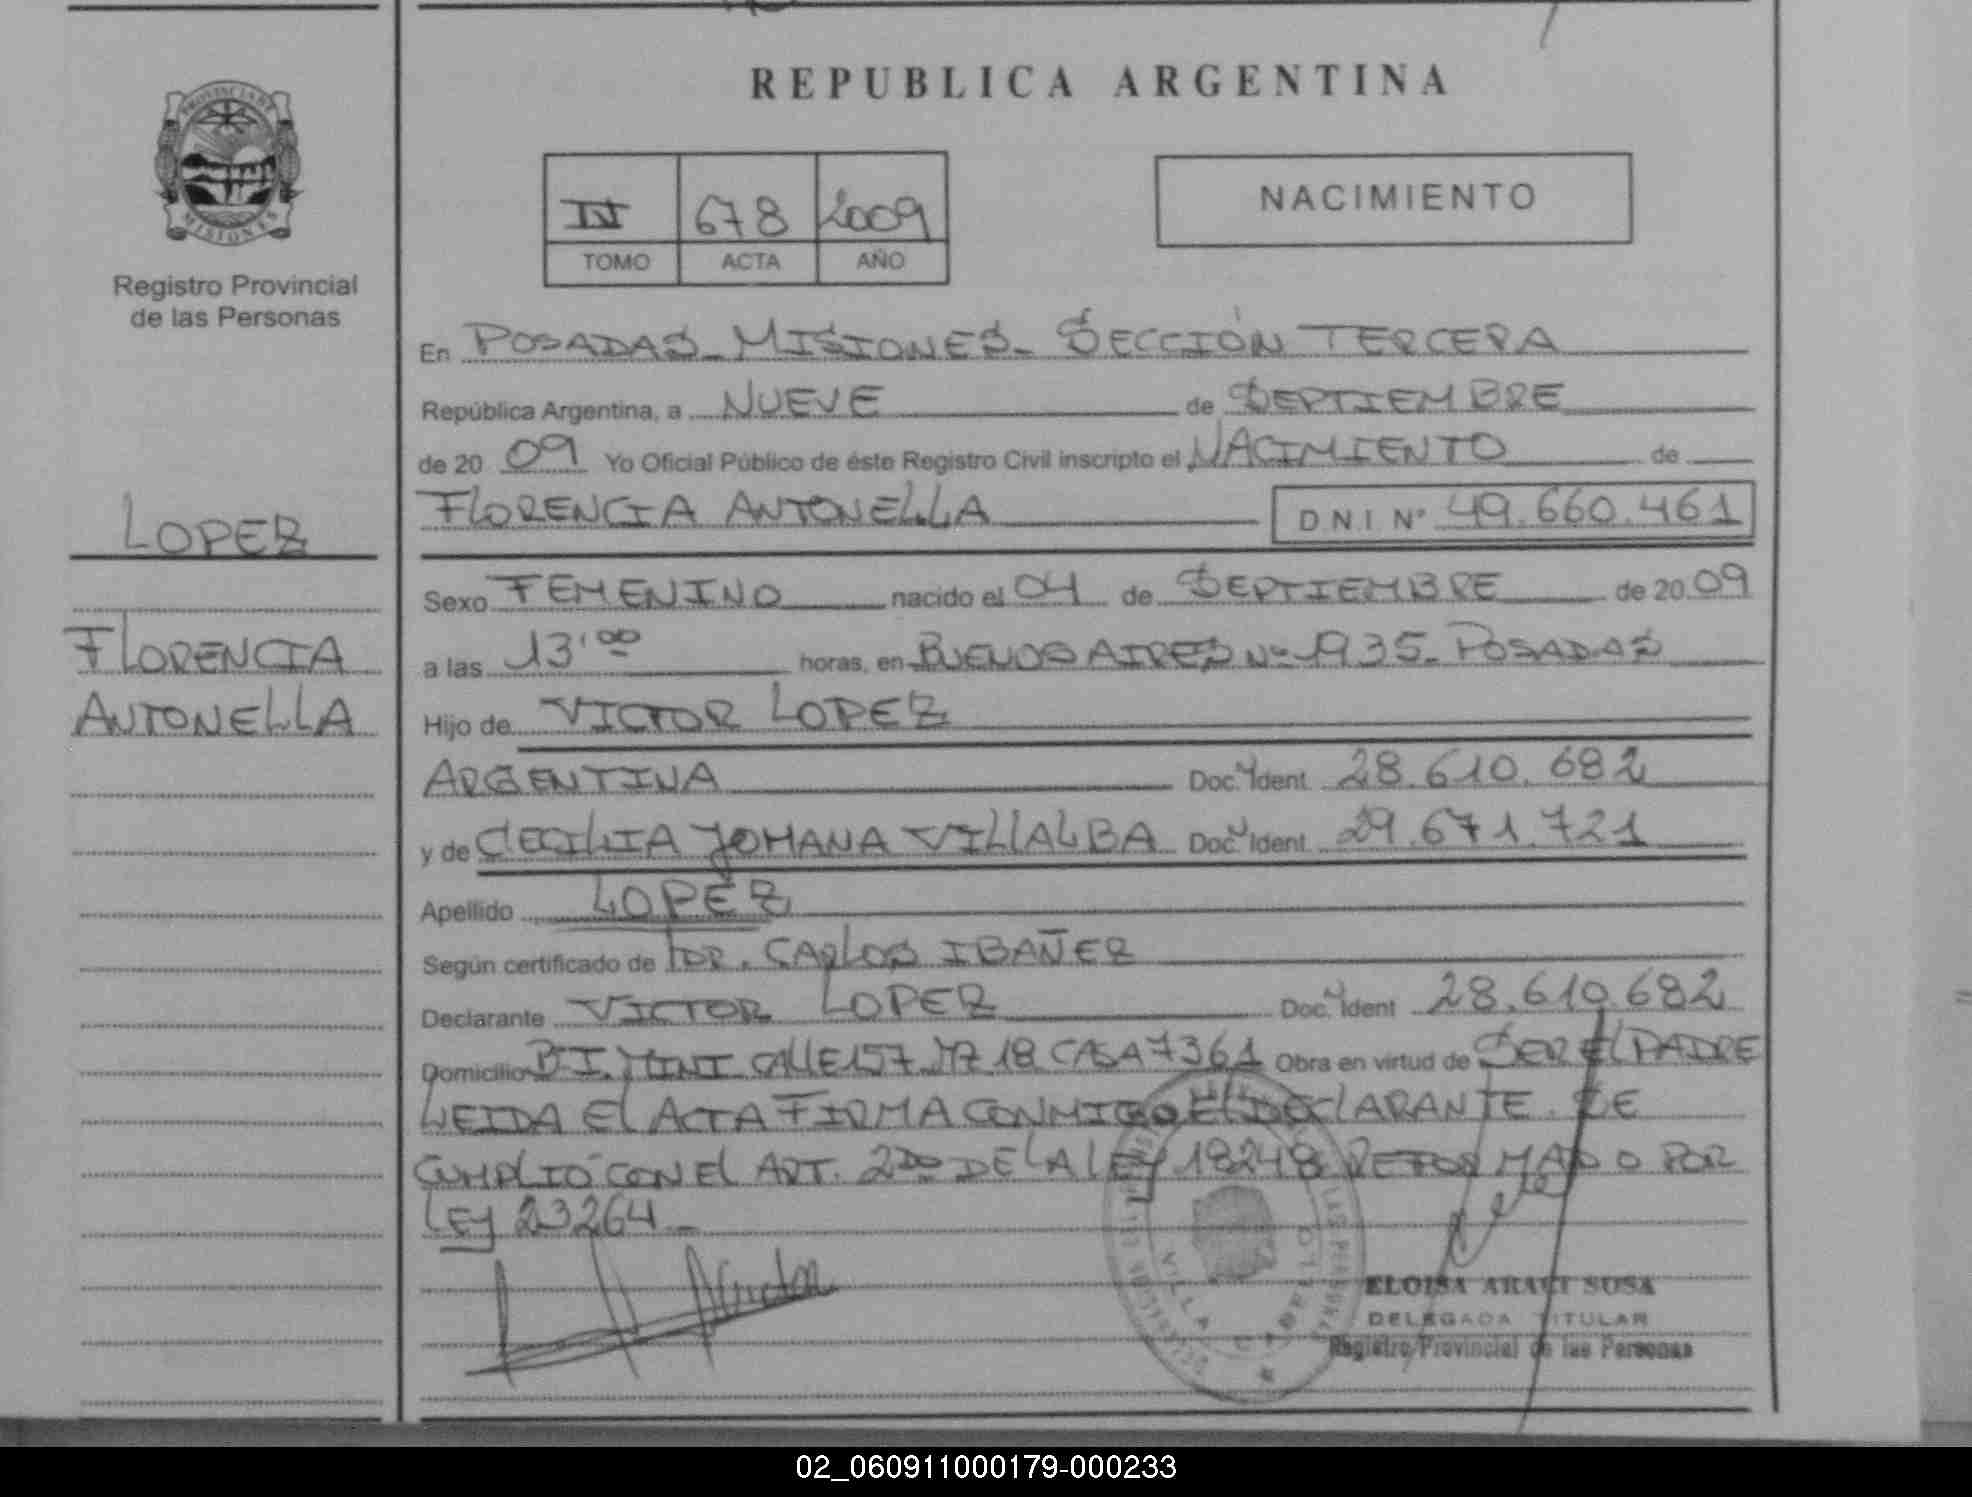 REPUBLICA ARGENTINA
PROVINCIA DE
MISIONES
Registro Provincial
de las Personas
IV 678 2009
TOMO ACTA AÑO
NACIMIENTO
En POSADAS_ MISIONES_ SECCIÓN TERCERA
República Argentina, a NUEVE de SEPTIEMBRE
de 20 09 Yo Oficial Público de éste Registro Civil inscripto el NACIMIENTO de
FLORENCIA ANTONELLA D N I Nº 49.660.461
LOPEZ
FLORENCIA
ANTONELLA
Sexo FEMENINO nacido el 04 de SEPTIEMBRE de 20 09
a las 13'00 horas, en BUENOS AIRES Nº 1935_ POSADAS
Hijo de VICTOR LOPEZ
ARGENTINA Doc. Ident. 28.610.682
y de CECILIA YOHANA VILLALBA Doc. Ident. 29.671.721
Apellido LOPEZ
Según certificado de DR. CARLOS IBAÑEZ
Declarante VICTOR LOPEZ Doc. Ident 28.610.682
Domicilio CALLE 157 MZ 18 CASA 7361 Obra en virtud de SER EL PADRE
LEIDA EL ACTA FIRMA CONMIGO EL DECLARANTE. SE
CUMPLIÓ CON EL ART. 2do DE LA LEY 18248 REFORMADO POR
LEY 23264_
VILLA CABELLO
ELOISA ARACI SOSA
DELEGADA TITULAR
Registro Provincial de las Personas
02_060911000179-000233